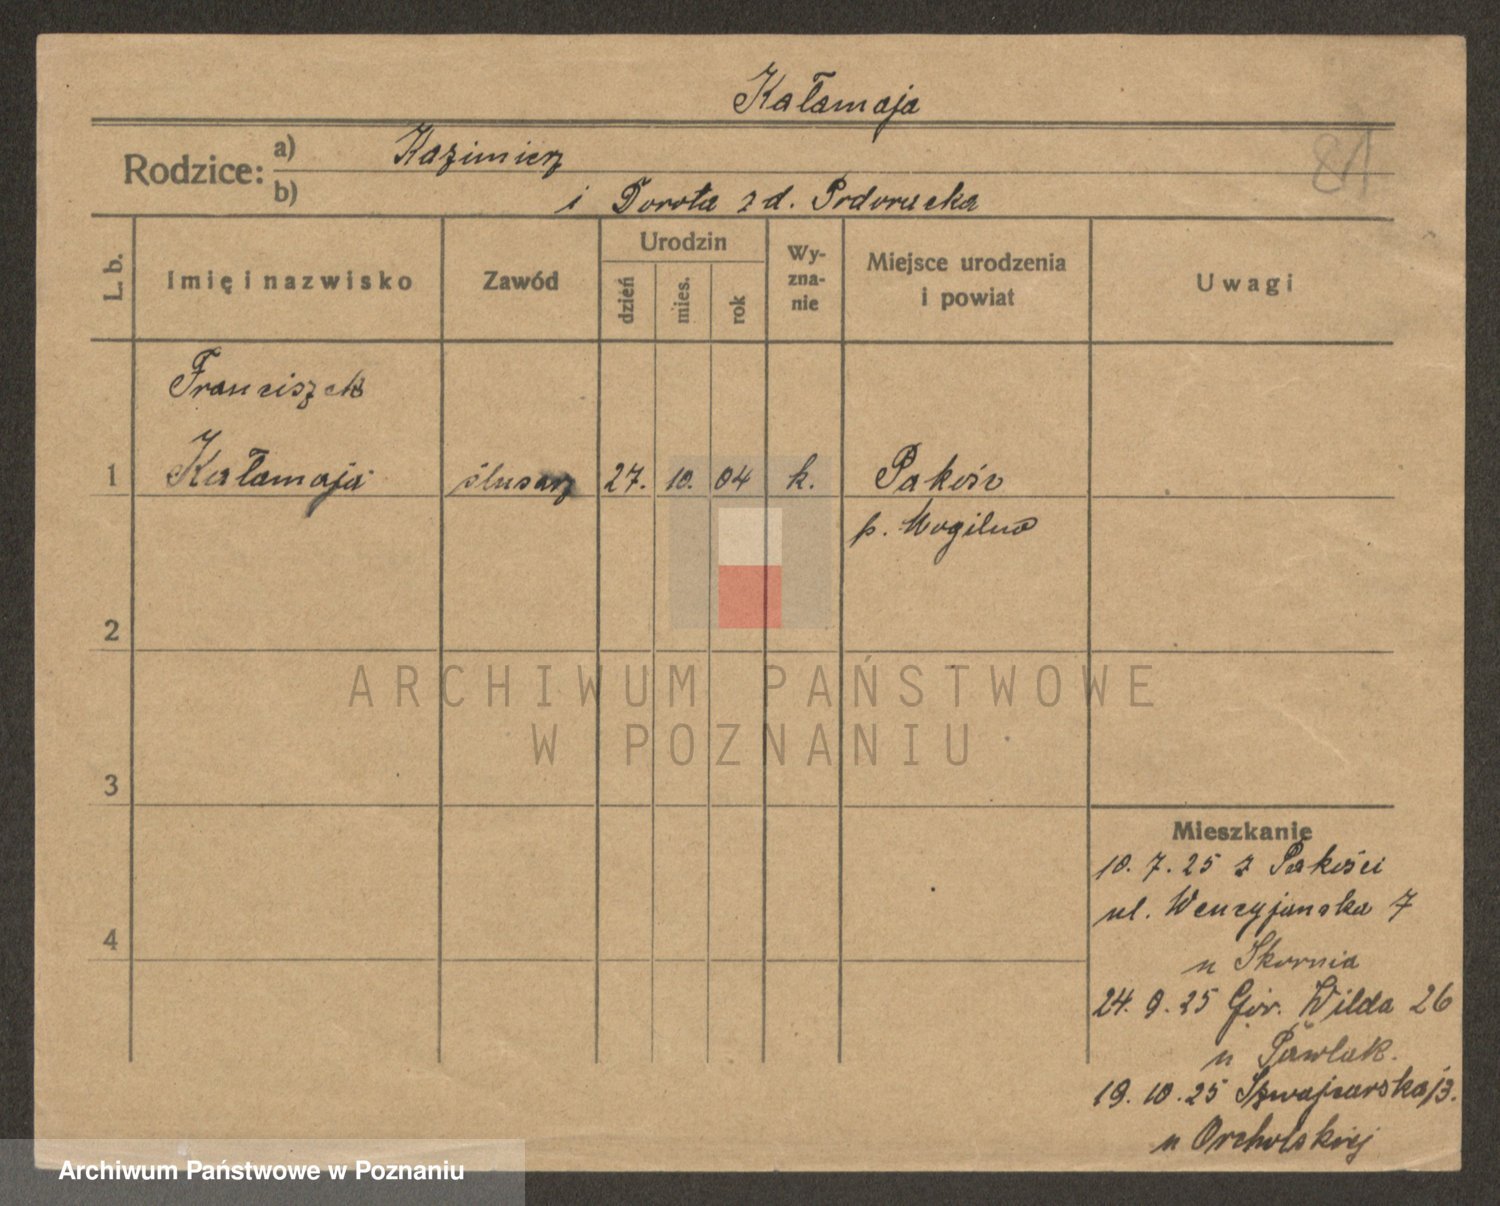 Kałamaja
81
Rodzice: a) Kazimierz
b) i Dorota z d.
L. b. Imię i nazwisko Zawód Urodzin dzień mies. rok Wy-zna-nie Miejsce urodzenia i powiat Uwagi
Franciszek
1 Kałamaja ślusarz 27. 10. 04 k. Pakość
p. Mogilno
2
ARCHIWUM PAŃSTWOWE
W POZNANIU
3
4
Mieszkanie
10. 7. 25 z Pakości
ul. 7
u Skornia
24. 9. 25 Gór. Wilda 26
u Pawlak.
19. 10. 25 Szwajcarska 13.
u Orcholskiej
Archiwum Państwowe w Poznaniu